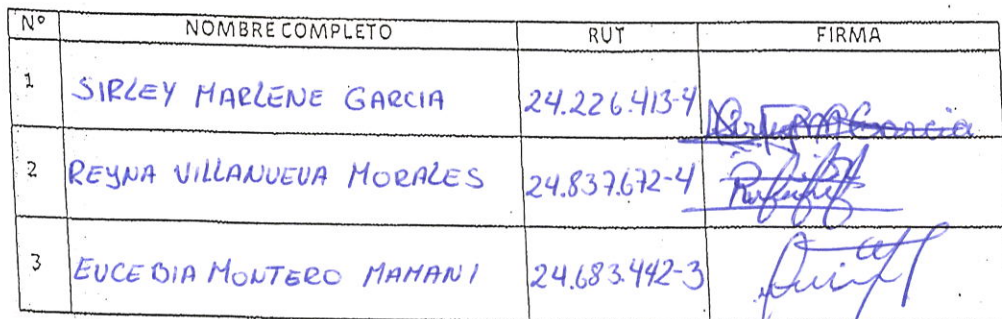 Nº NOMBRE COMPLETO RUT FIRMA
1 SIRLEY MARLENE GARCIA 24.226.413-4 Garcia
2 REYNA VILLANUEVA MORALES 24.837.672-4
3 EUCEBIA MONTERO MAMANI 24.683.442-3